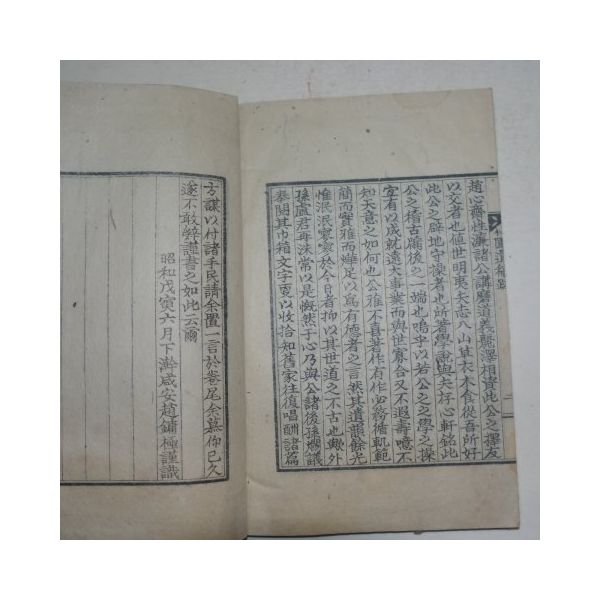 趙心齋性濂諸公講歷道義麗澤相資此公之擇友
以交者也値世明夷夫志八山草衣木食從吾所好
此公之辟地守操者也所著學說與夫存心軒銘此
公之稽古窺後之一端也嗚乎以若公之文學之操
宜有以成就遠大事業而與世寡合又不遐壽噫不
知天意之如何也公雅不喜著作有作必務循軌範
簡而實雅而燁足以爲有德者之言然其遺韻餘光
惟泯泯寥寥於今日者抑以其世道之不古也歟外
孫盧君再洙常以是慨然于心乃與公諸後孫爛議
泰閱其巾箱文字更以收拾知舊家往復唱酬諸篇
方謀以付諸手民請余置一言於卷尾余慕仰已久
遂不敢辭謹書之如此云爾
昭和戊寅六月下澣咸安趙鏞極謹識